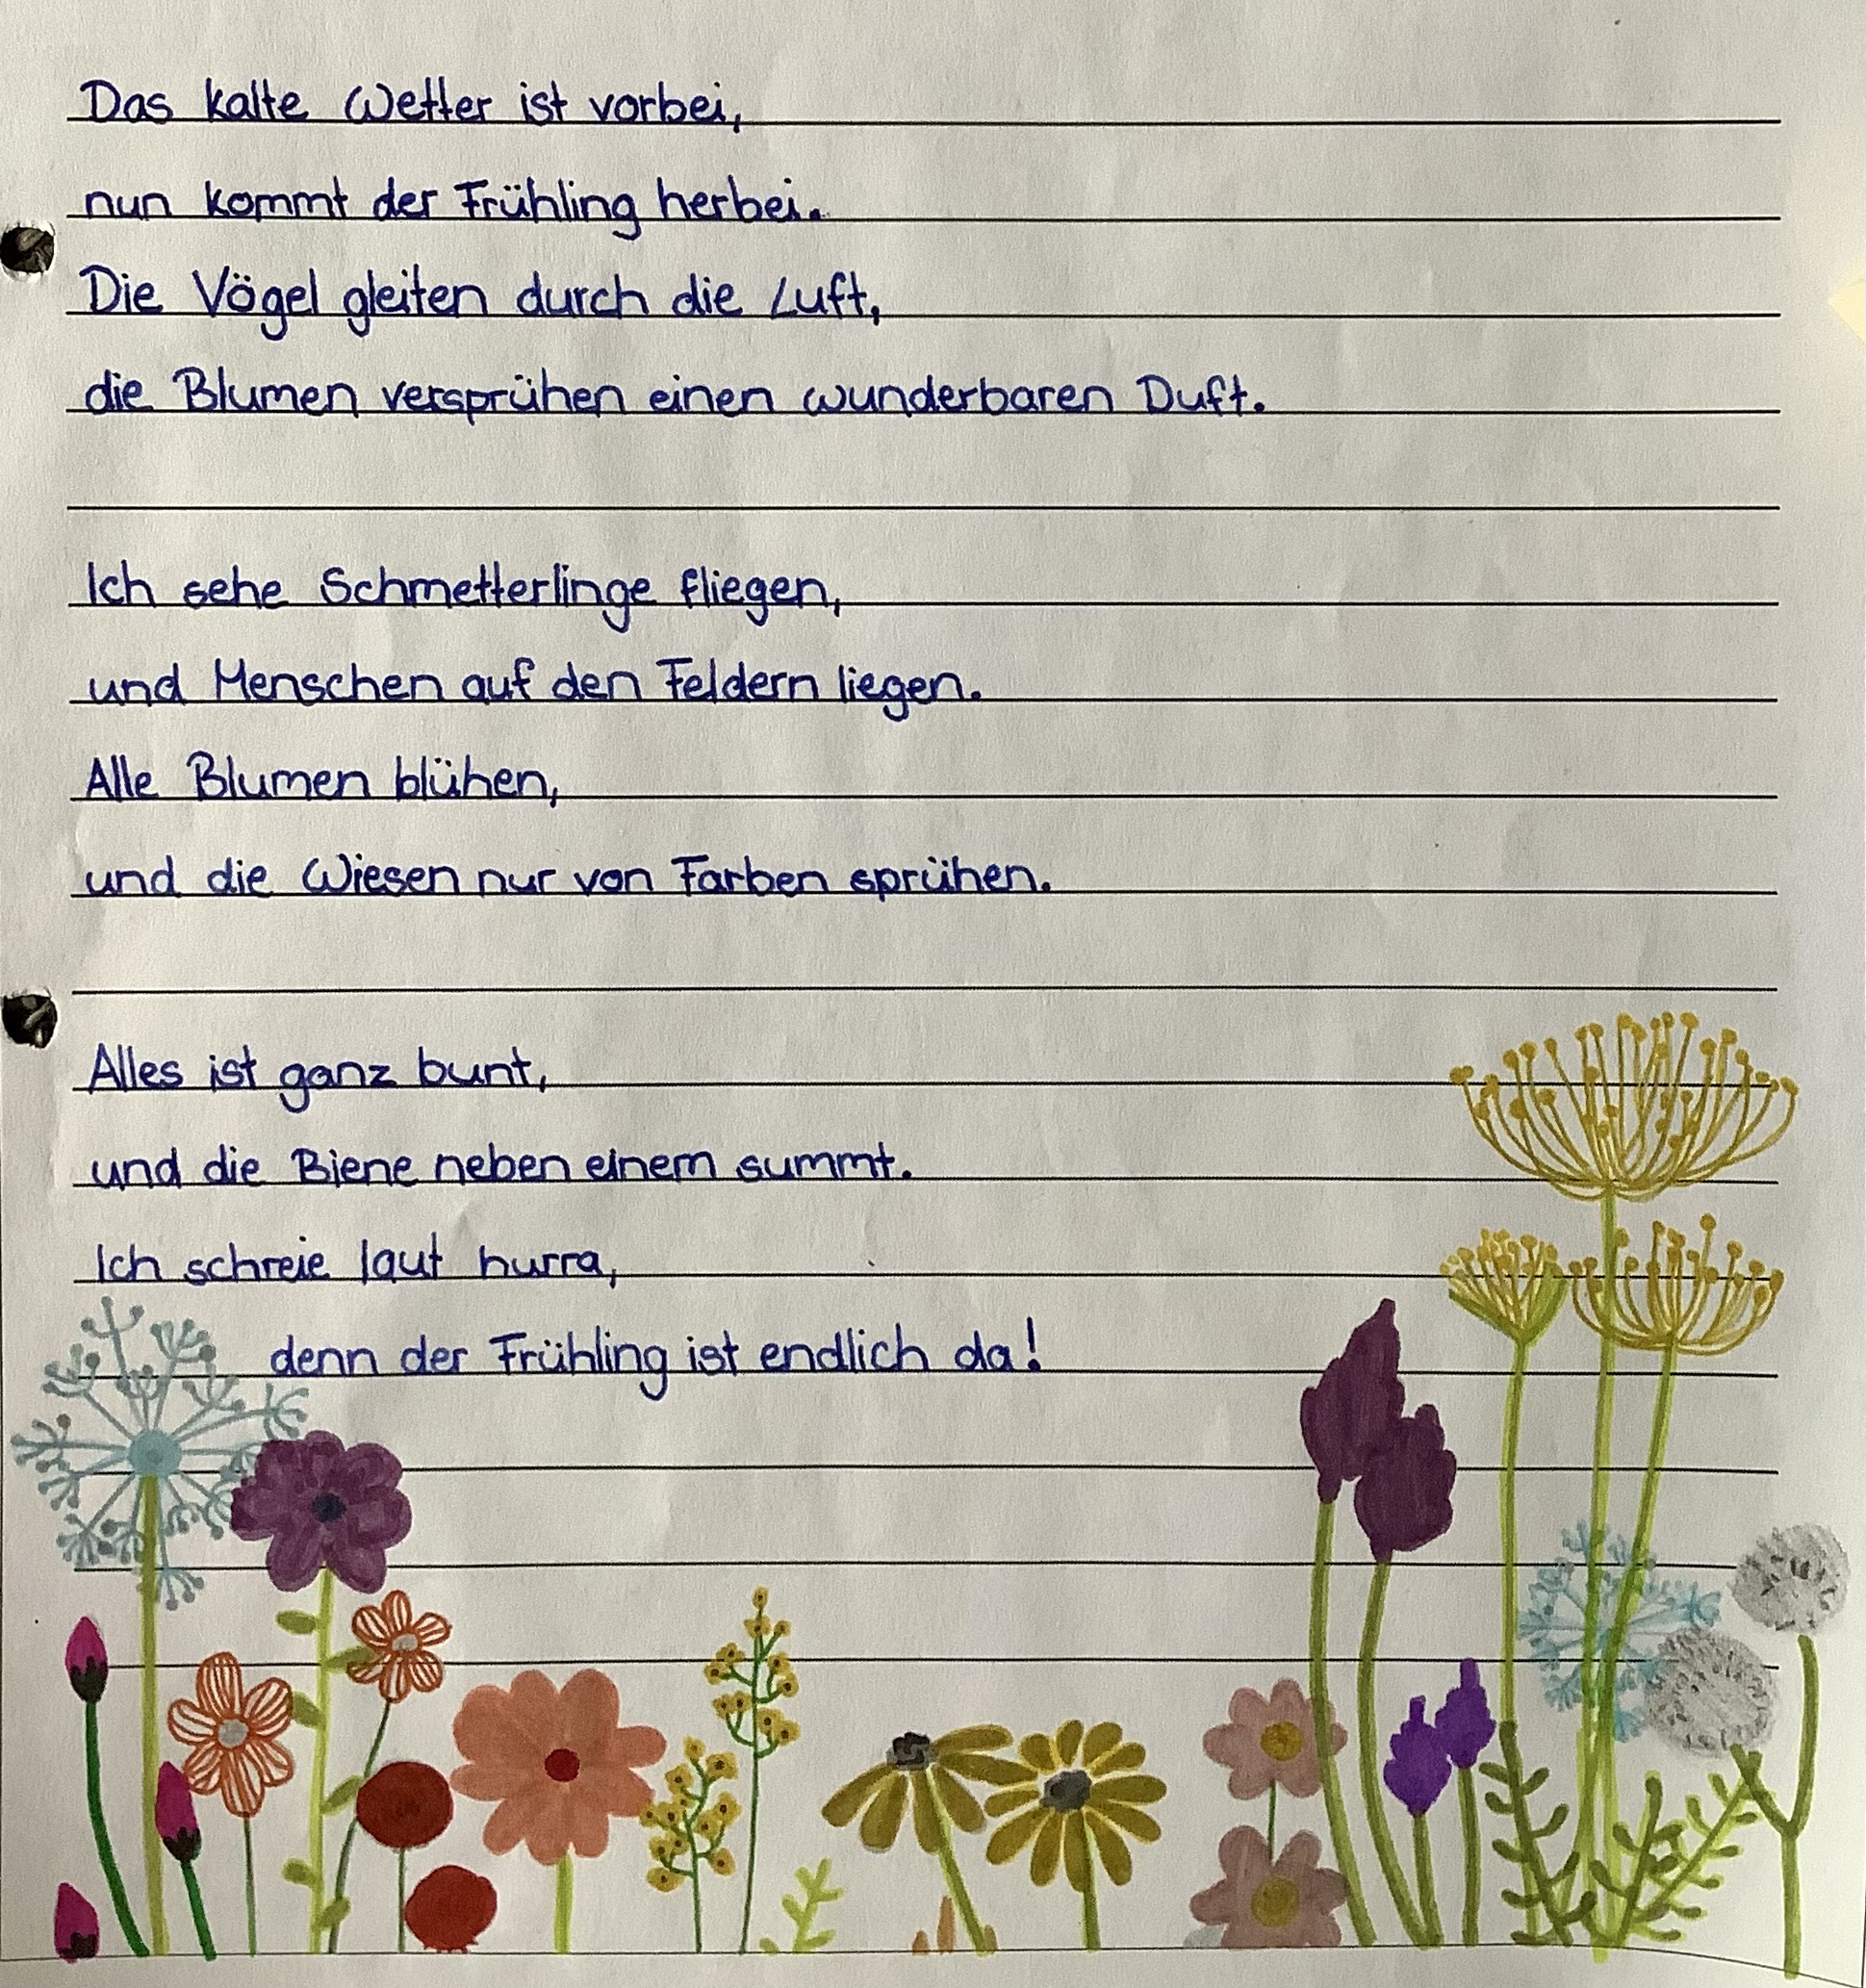 Das kalte Wetter ist vorbei,
nun kommt der Frühling herbei.
Die Vögel gleiten durch die Luft,
die Blumen versprühen einen wunderbaren Duft.
Ich sehe Schmetterlinge fliegen,
und Menschen auf den Feldern liegen.
Alle Blumen blühen,
und die Wiesen nur von Farben sprühen.
Alles ist ganz bunt,
und die Biene neben einem summt.
Ich schreie laut hurra,
denn der Frühling ist endlich da!